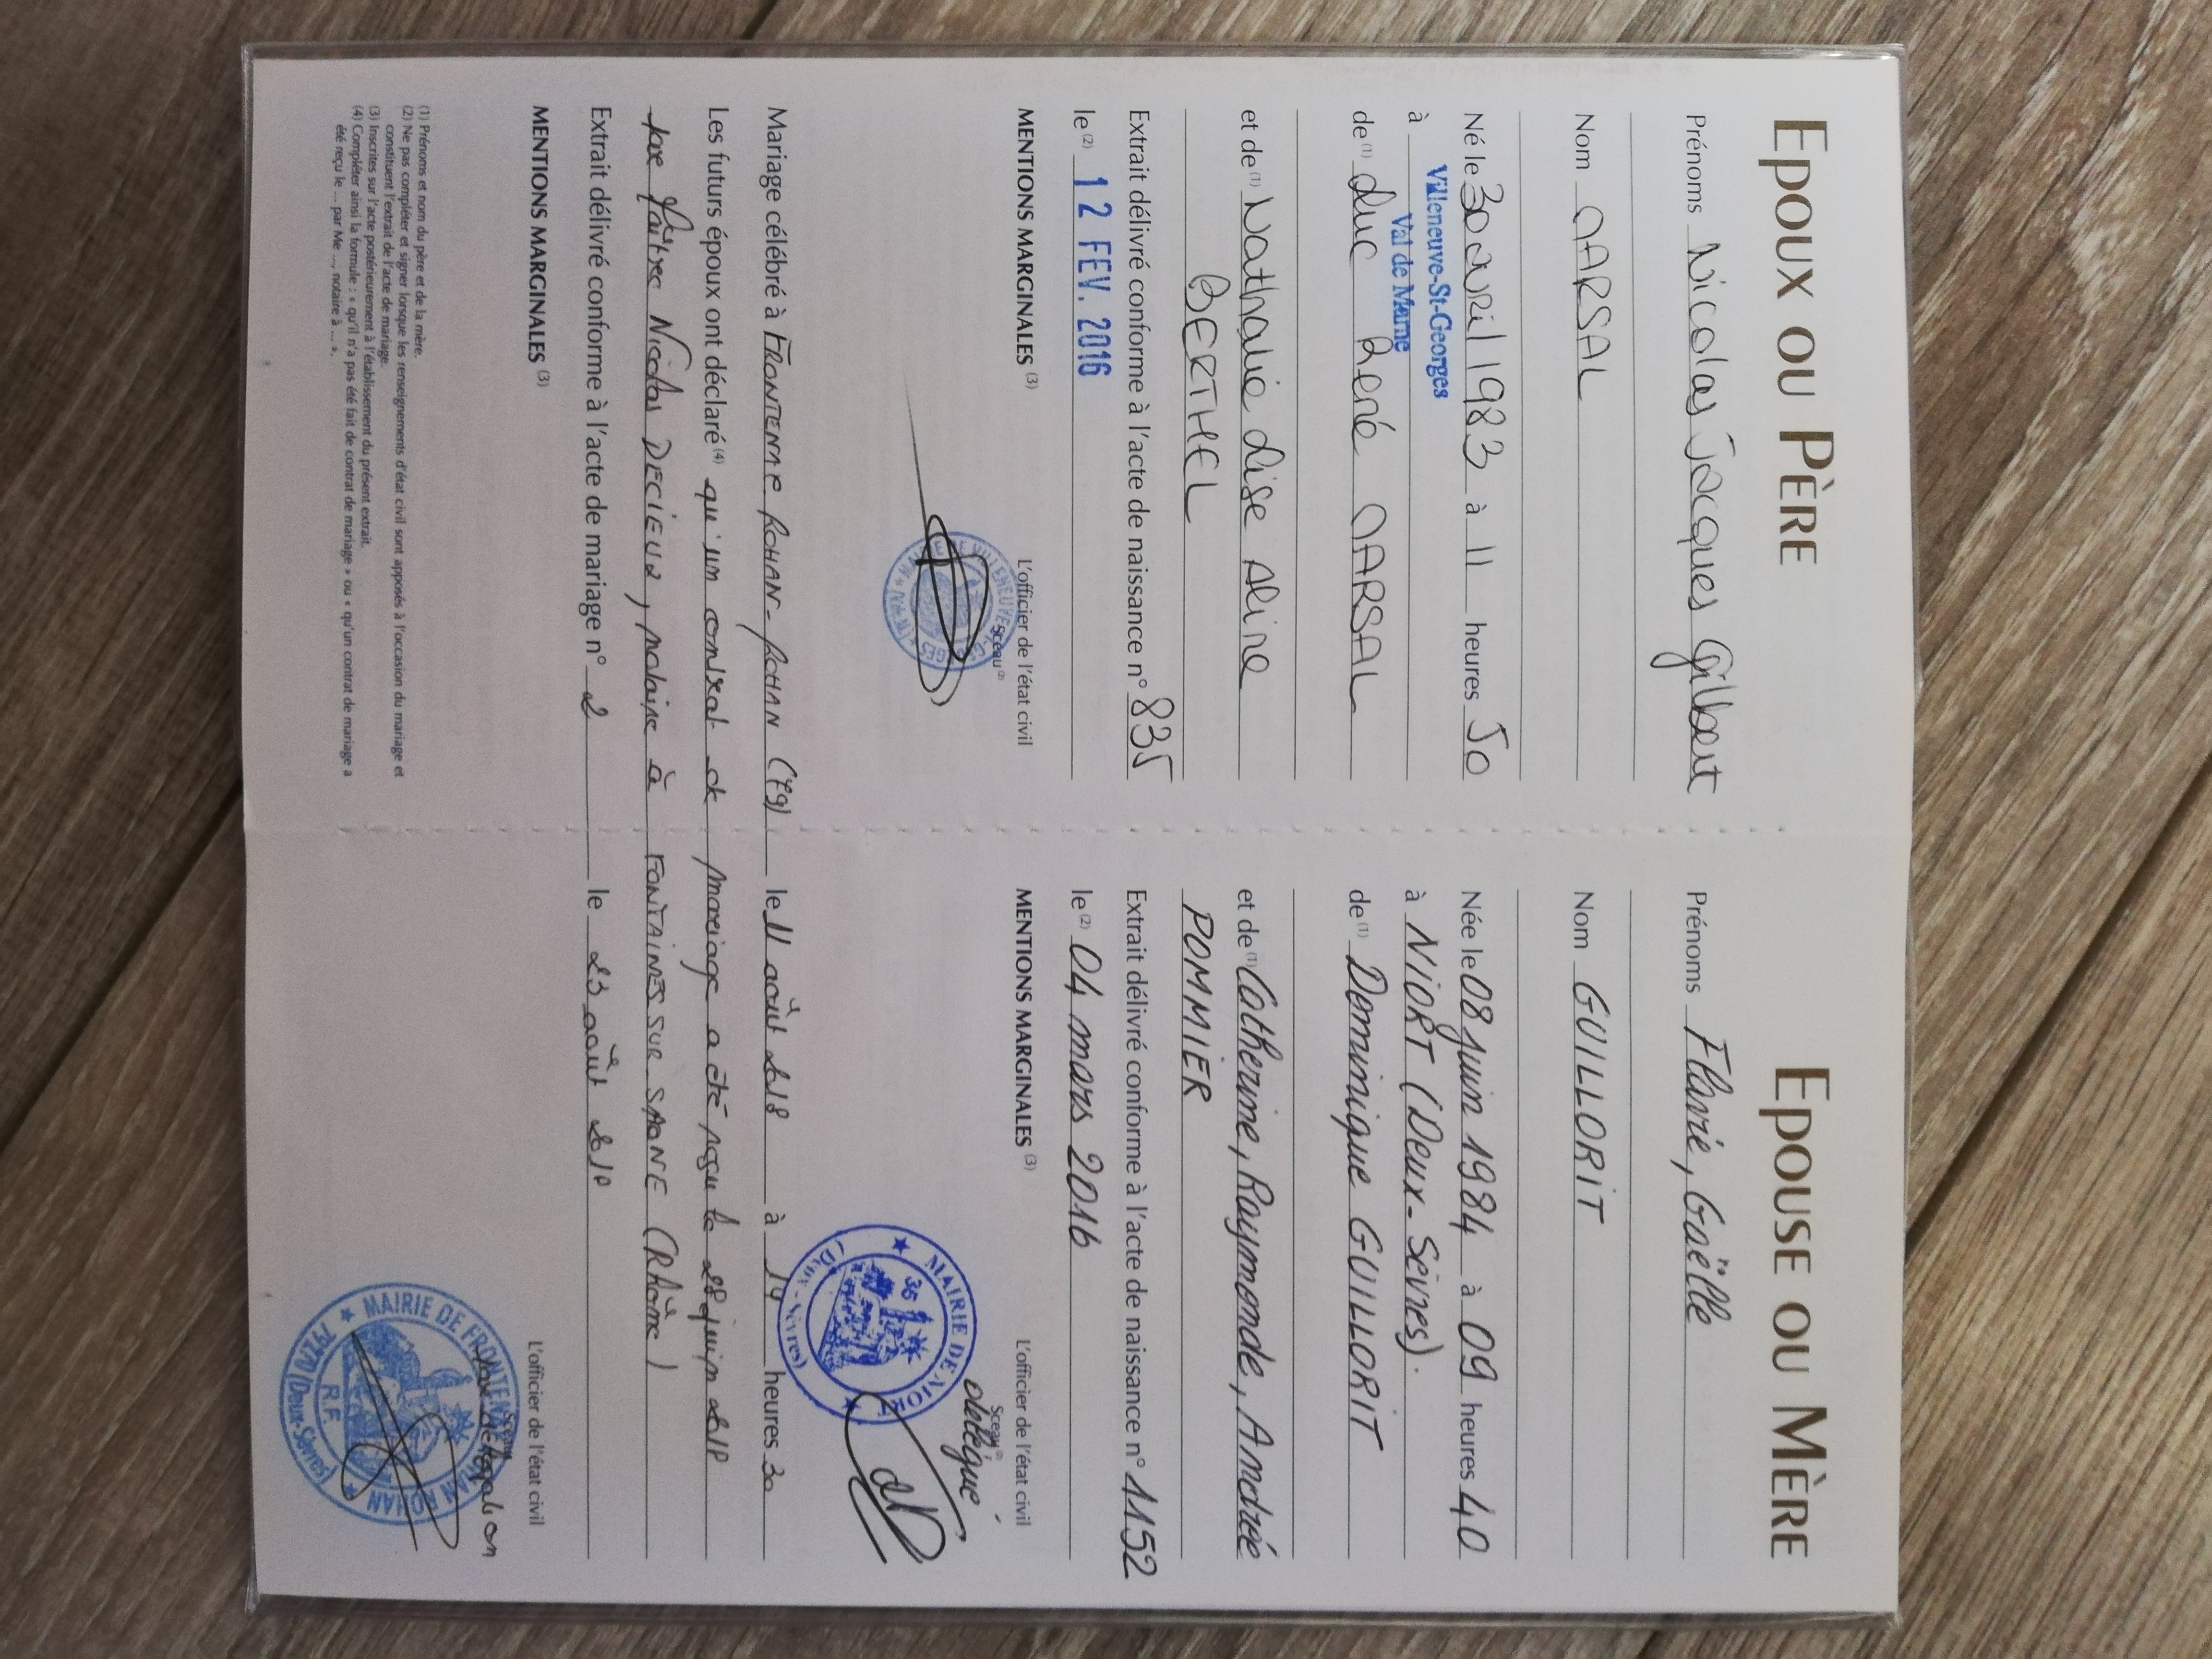 EPOUX OU PÈRE
Prénoms Nicolas Jacques Gilbert
Nom MARSAL
Né le 30 avril 1983 à 11 heures 50
à Villeneuve-St-Georges
Val de Marne
de (1) Luc René MARSAL
et de (1) Nathalie Lise Aline
BERTHEL
Extrait délivré conforme à l'acte de naissance n° 835
le (2) 12 FEV. 2016
MENTIONS MARGINALES (3)
L'officier de l'état civil
Sceau (2)
EPOUSE OU MÈRE
Prénoms Flavie, Gaëlle
Nom GUILLORIT
Née le 08 juin 1984 à 09 heures 40
à NIORT (Deux-Sèvres).
de (1) Dominique GUILLORIT
et de (1) Catherine, Raymonde, Andrée
POMMIER
Extrait délivré conforme à l'acte de naissance n° 1152
le (2) 04 mars 2016
MENTIONS MARGINALES (3)
L'officier de l'état civil
Sceau (2)
délégué
MAIRIE DE NIORT
(Deux-Sèvres)
Mariage célébré à FRONTENAY ROHAN-ROHAN (79) le 11 août 2018 à 14 heures 30
Les futurs époux ont déclaré (4) qu'un contrat de mariage a été reçu le 28 juin 2018
par Maître Nicolas DECIEUX, notaire à FONTAINES SUR SAONE (Rhône)
Extrait délivré conforme à l'acte de mariage n° 2 le 23 août 2018
MENTIONS MARGINALES (3)
L'officier de l'état civil
Sceau
par délégation
MAIRIE DE FRONTENAY ROHAN ROHAN
R.F.
79270 (Deux-Sèvres)
(1) Prénoms et nom du père et de la mère.
(2) Ne pas compléter et signer lorsque les renseignements d'état civil sont apposés à l'occasion du mariage et
constituent l'extrait de l'acte de mariage.
(3) Inscrites sur l'acte postérieurement à l'établissement du présent extrait.
(4) Compléter ainsi la formule : « qu'il n'a pas été fait de contrat de mariage » ou « qu'un contrat de mariage a
été reçu le ... par Me ..., notaire à ... ».